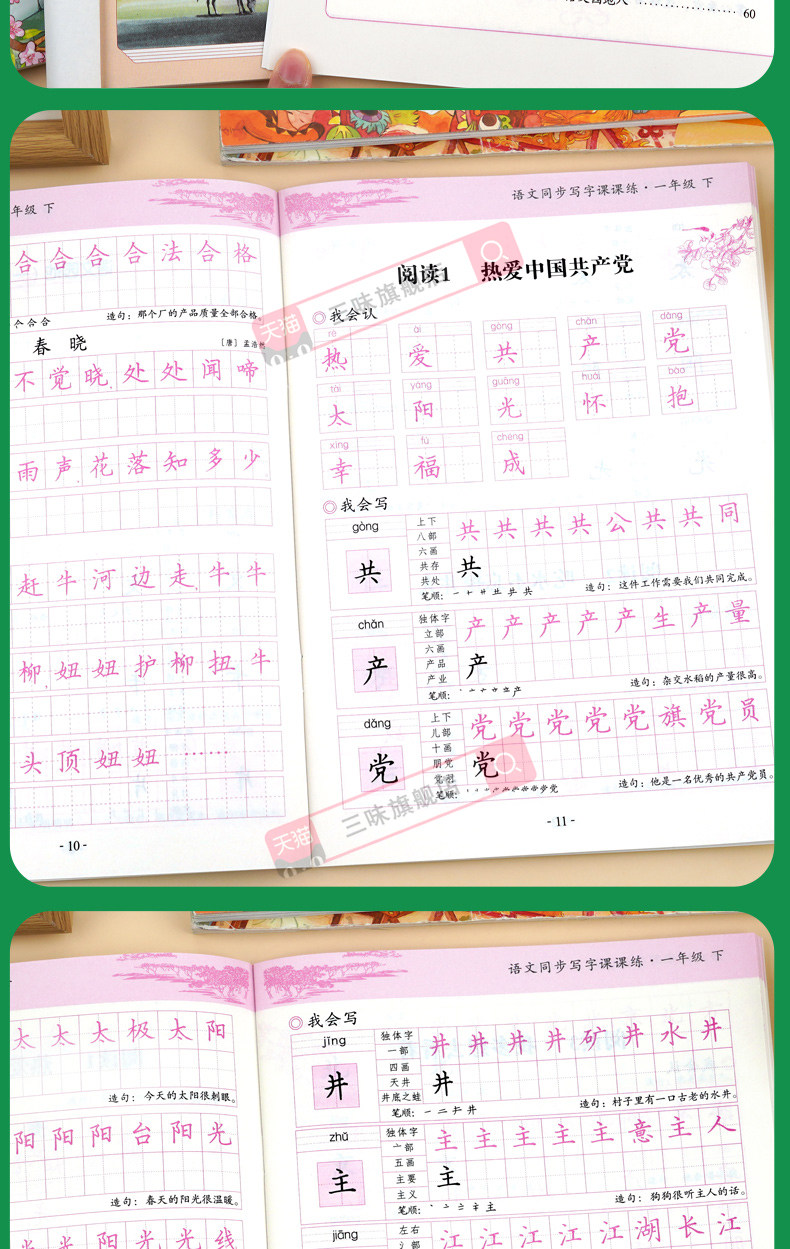 60
年级 下
合 合 合 合 法 合 格
造句：那个厂的产品质量全部合格。
春 晓
[唐] 孟浩然
不 觉 晓， 处 处 闻 啼
雨 声， 花 落 知 多 少
赶 牛 河 边 走， 牛 牛
柳， 妞 妞 护 柳 扭 牛
头 顶 妞 妞 ……
- 10 -
语文同步写字课课练·一年级 下
阅读1 热爱中国共产党
我会认
rè ài gòng chǎn dǎng
热 爱 共 产 党
tài yáng guāng huái bào
太 阳 光 怀 抱
xìng fú chéng
幸 福 成
我会写
gòng
共
上下
八部
六画
共存
共处
共 共 共 共 公 共 共 同
共
笔顺：
造句：这件工作需要我们共同完成。
chǎn
产
独体字
立部
六画
产品
产业
产 产 产 产 产 生 产 量
产
笔顺：
造句：杂交水稻的产量很高。
dǎng
党
上下
儿部
十画
朋党
党 党 党 党 党 旗 党 员
党
笔顺：
造句：他是一名优秀的共产党员。
- 11 -
天猫 三味旗舰店
天猫 三味旗舰店
太 太 太 极 太 阳
造句：今天的太阳很刺眼。
阳 阳 阳 台 阳 光
造句：春天的阳光很温暖。
光 光 阳 光 光 线
语文同步写字课课练·一年级 下
我会写
jǐng
井
独体字
一部
四画
天井
井底之蛙
井 井 井 井 矿 井 水 井
井
笔顺：一 二 井 井
造句：村子里有一口古老的水井。
zhǔ
主
独体字
亠部
五画
主要
主义
主 主 主 主 主 意 主 人
主
笔顺：
造句：狗狗很听主人的话。
jiāng
左右
氵部
江 江 江 江 江 湖 长 江